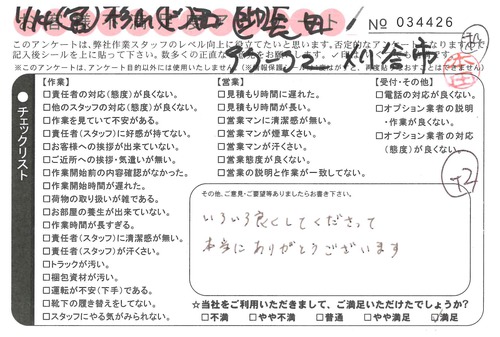 No 034426
このアンケートは、弊社作業スタッフのレベル向上に役立てたいと思います。否定的なアンケートもなりますので
※このアンケートは、アンケート目的以外には使用いたしません。
刈谷市
+2
チェックリスト
【作業】
□責任者の対応(態度)が良くない。
□他のスタッフの対応(態度)が良くない。
□作業を見ていて不安がある。
□責任者(スタッフ)に好感が持てない。
□お客様への挨拶が出来ていない。
□ご近所への挨拶・気遣いが無い。
□作業開始前の内容確認がなかった。
□作業開始時間が遅れた。
□荷物の取り扱いが雑である。
□お部屋の養生が出来ていない。
□作業時間が長すぎる。
□責任者(スタッフ)に清潔感が無い。
□責任者(スタッフ)が汗くさい。
□トラックが汚い。
□梱包資材が汚い。
□運転が不安(下手)である。
□靴下の履き替えをしてない。
□スタッフにやる気がみられない。
【営業】
□見積もり時間に遅れた。
□見積もり時間が長い。
□営業マンに清潔感が無い。
□営業マンが煙草くさい。
□営業マンが汗くさい。
□営業態度が良くない。
□営業の説明と作業が一致してない。
【受付・その他】
□電話の対応が良くない。
□オプション業者の説明
・作業が良くない。
□オプション業者の対応
(態度)が良くない。
その他、ご意見・ご要望等ありましたらお書き下さい。
いろいろ良くしてくださって
本当にありがとうございます
☆当社をご利用いただきまして、ご満足いただけたでしょうか?
□不満 □やや不満 □普通 □やや満足 ☑満足